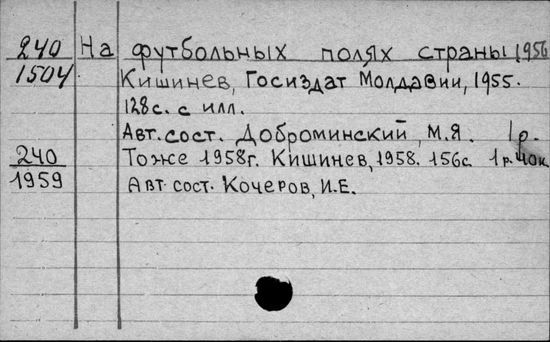 240 На футбольных полях страны, 1956
1504 Кишинев, Госиздат Молдавии, 1955.
128с. с илл.
Авт. сост. Доброминский, М.Я. 1р.
240 Тоже 1958г. Кишинев, 1958. 156с. 1р. 40к.
1959 Авт. сост. Кочеров, И.Е.